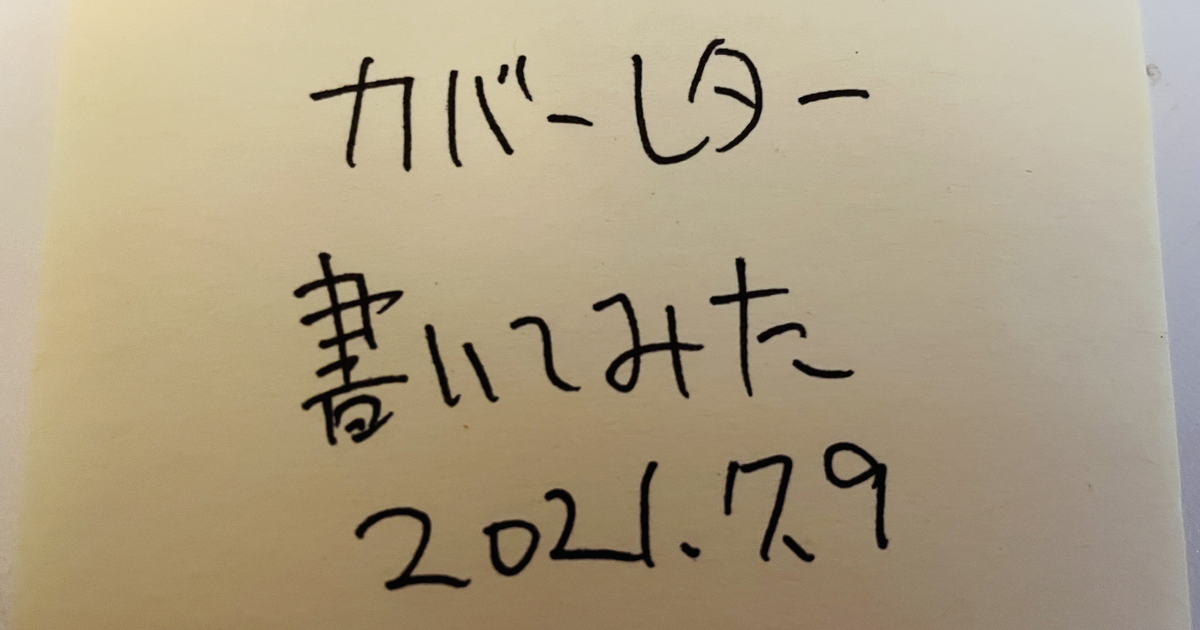 カバーレター
書いてみた
2021.7.9